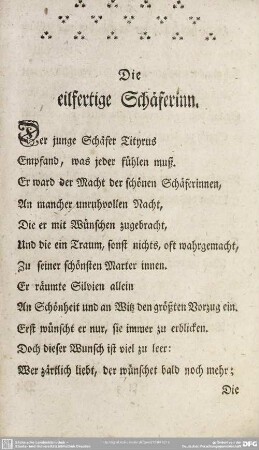 Die
eilfertige Schäferinn.
Der junge Schäfer Tityrus
Empfand, was jeder fühlen muß.
Er ward der Macht der schönen Schäferinnen,
An mancher unruhvollen Nacht,
Die er mit Wünschen zugebracht,
Und die ein Traum, sonst nichts, oft wahrgemacht,
Zu seiner schönsten Marter innen.
Er räumte Silvien allein
An Schönheit und an Witz den größten Vorzug ein.
Erst wünscht er nur, sie immer zu erblicken.
Doch dieser Wunsch ist viel zu leer:
Wer zärtlich liebt, der wünschet bald noch mehr;
Die